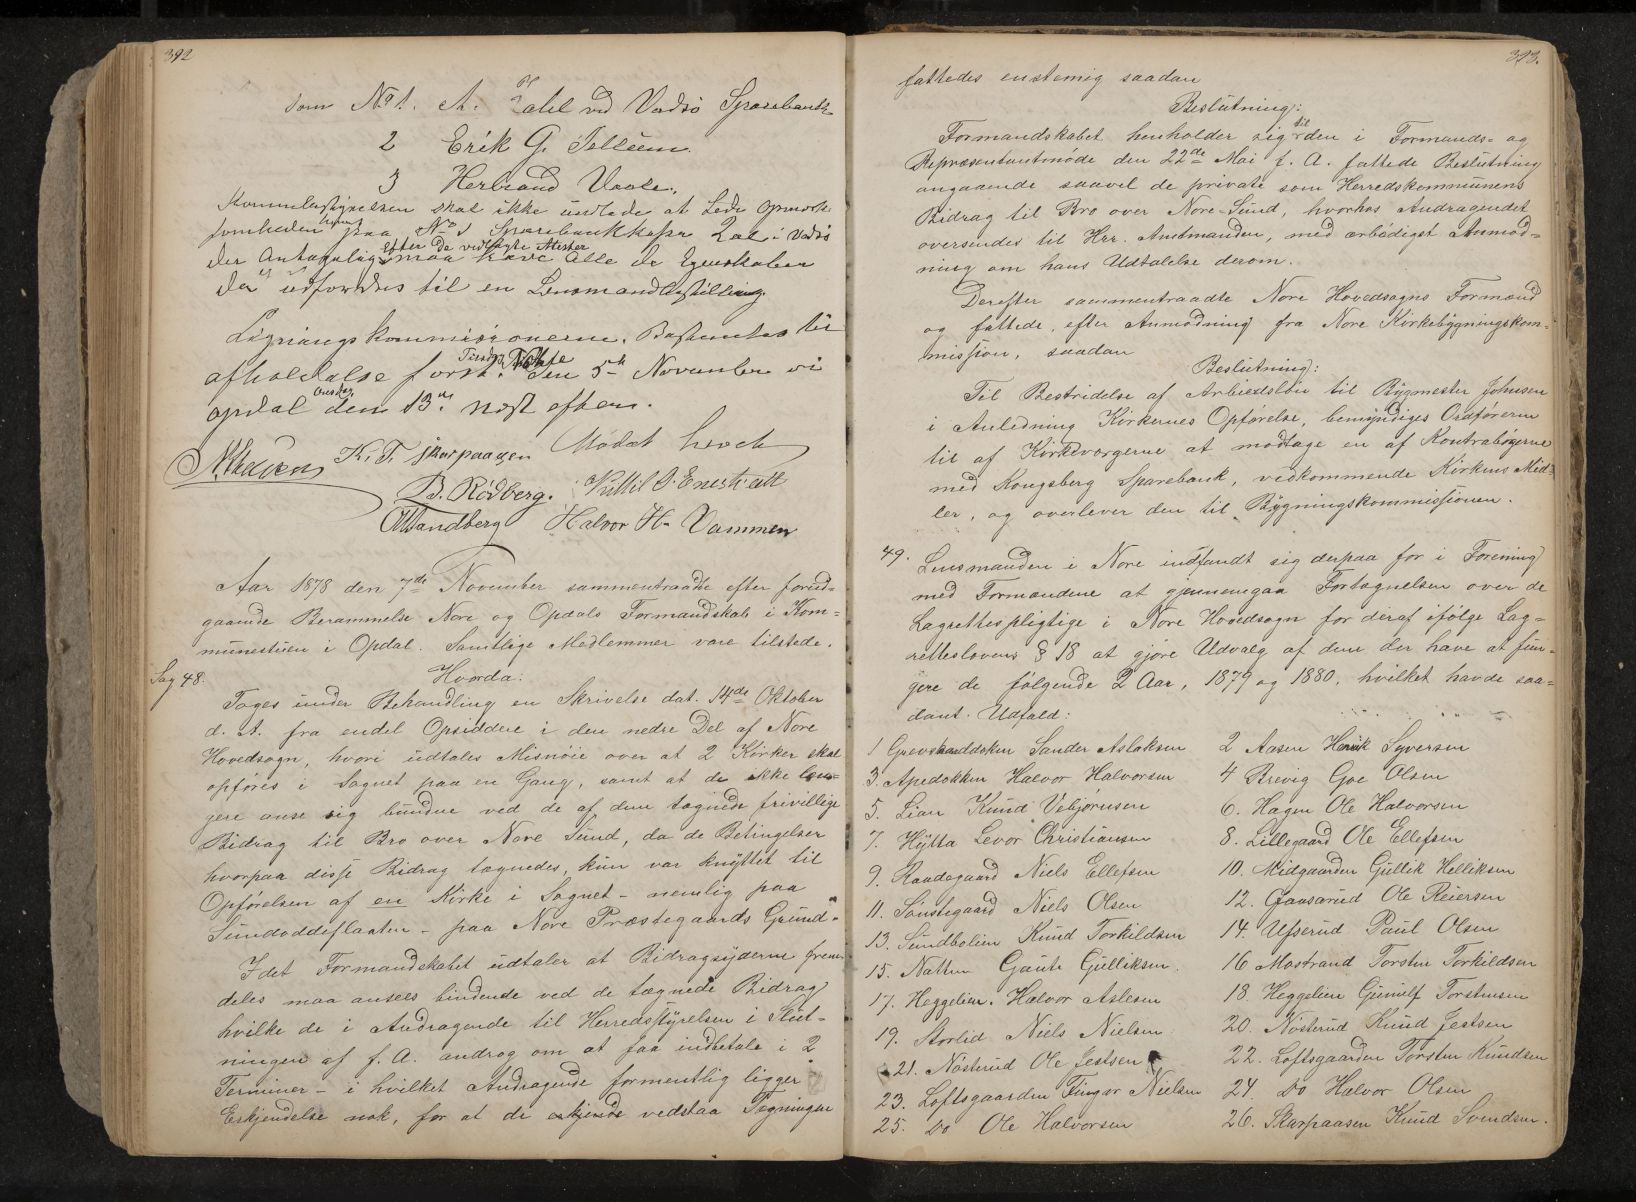 392
som No 1. A. Zahl ved Vadsö Sparebank
2 Erik G. Telleeen
3 Herbrand Vaale.
Kommunestyrelsen skal ikke undlade at Lede Opmærk-
somheden paa No 1 Sparebankkasser Zal i Vadsö
der Antagelig efter de vedlagte Attester maa have alle de Egenskaber
der udfordres til en Lensmandbestilling.
Ligningskommisionerne. Bestemtes til
afholdelse först. Tirsdag den 5te November i
opdal Onsdag den 13de næst efter.
K. T. Skarpaasen
B. Rödberg. Kittil O. Enerstvedt
Sandberg Halvor H. Vammen
Aar 1878 den 7de November sammentraadte efter forud-
gaaende Berammelse Nore og Opdals Formandskab i Kom-
munestuen i Opdal. Samtlige Medlemmer vare tilstede.
Sag 48. Hvorda:
Toges under Behandling en Skrivelse dat. 14de Oktober
d. A. fra endel Opsiddere i den nedre Del af Nore
Hovedsogn, hvori udtales Misnöie over at 2 Kirker skal
opföres i Sognet paa en Gang, samt at de ikke læn-
gere anse sig bundne ved de af dem tegnede frivillige
Bidrag til Bro over Nore Sund, da de Betingelser
hvorpaa disse Bidrag tegnedes, kun var knyttet til
Opförelsen af en Kirke i Sognet – nemlig paa
Sundoddeflaaten – paa Nore Præstegaards Grund.
Idet Formandskabet udtaler at Bidragsyderne frem-
deles maa ansees bindende ved de tegnede Bidrag
hvilke de i Andragende til Herredsstyrelsen i Slut-
ningen af f. A. androg om at faa indbetale i 2
Terminer – i hvilket Andragende formentlig ligger
Erkjendelse nok, for at de erkjende vedstaa Tegningen
393.
fattedes enstemig saadan
Beslutning:
Formandskabet henholder sig til den i Formands- og
Repræsentantmöde den 22de Mai f. A. fattede Beslutning
angaaende saavel de private som Herredskommunens
Bidrag til Bro over Nore-Sund, hvorhos Andragendet
oversendes til Hrr. Amtmanden, med ærbödigst Anmod-
ning om hans Udtalelse derom.
Derefter sammentraadte Nore Hovedsogns Formænd
og fattede, efter Anmodning fra Nore Kirkebygningskom-
mission, saadan
Beslutning:
Til Bestridelse af Arbeidslön til Bygmester Johnsen
i Anledning Kirkernes Opförelse, bemyndiges Ordföreren
til af Kirkeværgerne at modtage en af Kontrabögerne
med Kongsberg Sparebank, vedkommende Kirkens Mid-
ler, og overlever den til Bygningskommissionen.
49. Lensmanden i Nore indfandt sig derpaa for i Forening
med Formændene at gjennemgaa Fortegnelsen over de
Lagrettespligtige i Nore Hovedsogn for deraf ifölge Lag-
retteslovens § 18 at gjöre Udvalg af dem der have at fun-
gere de fölgende 2 Aar, 1879 og 1880, hvilket havde saa-
dant Udfald:
1 Grevskarddoken Sander Aslaksen 2 Aasen Henrik Syversen
3. Apedokken Halvor Halvorsen 4 Brevig Goe Olsen
5. Lian Knud Vebjörnsen 6. Hagen Ole Halvorsen
7. Hytta Levor Christiansen 8. Lillegaard Ole Ellefsen
9. Raadegaard Niels Ellefsen 10. Midgaarden Gullik Helliksen
11. Sönstegaard Niels Olsen 12. Gaasarud Ole Reiersen
13. Sundbolien Knud Torkildsen 14. Ufserud Paul Olsen
15. Natten Gaute Gulliksen. 16 Mostrand Torsten Torkildsen
17. Heggelien. Halvor Aslesen 18. Heggelien Gunulf Torstensen
19. Storlid Niels Nielsen 20. Nösterud Knud Jestsen
21. Nösterud Ole Jestsen 22. Loftsgaarden Torsten Knudsen
23. Loftsgaarden Tingor Nielsen 24. Do Halvor Olsen
25. Do Ole Halvorsen 26. Skarpaasen Knud Svendsen.